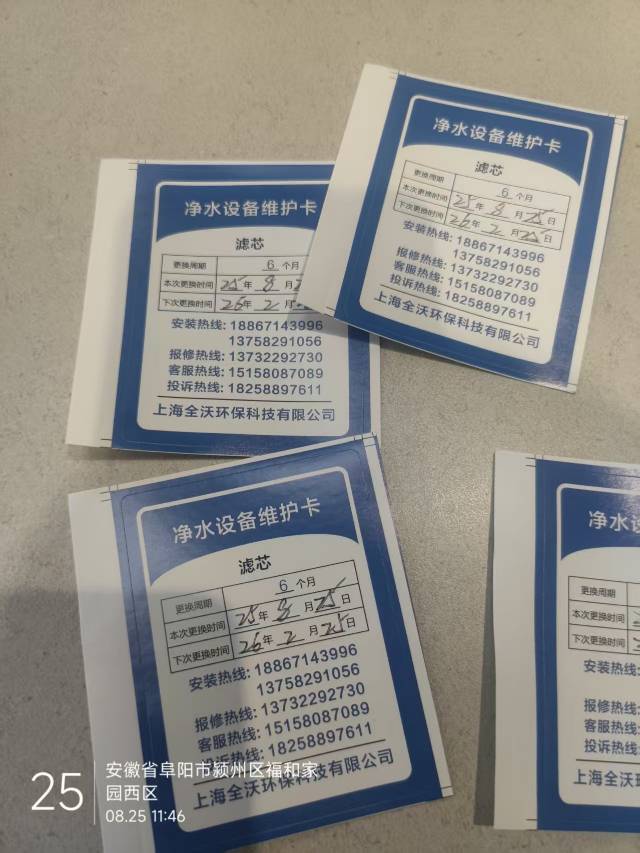 净水设备维护卡
滤芯
更换周期 6 个月
本次更换时间 25年 8月 25日
下次更换时间 26年 2月 25日
安装热线: 18867143996
13758291056
报修热线: 13732292730
客服热线: 15158087089
投诉热线: 18258897611
上海全沃环保科技有限公司
净水设备维护卡
滤芯
更换周期 6 个月
本次更换时间 25年 8月
下次更换时间 26年 2月
安装热线: 18867143996
13758291056
报修热线: 13732292730
客服热线: 15158087089
投诉热线: 18258897611
上海全沃环保科技有限公司
净水设备维护卡
滤芯
更换周期 6 个月
本次更换时间 25年 8月 25日
下次更换时间 26年 2月 25日
安装热线: 18867143996
13758291056
报修热线: 13732292730
客服热线: 15158087089
投诉热线: 18258897611
上海全沃环保科技有限公司
净水
更换周期
本次更换时间
下次更换时间
安装热线:
报修热线:
客服热线:
投诉热线:
上海全沃
25
安徽省阜阳市颍州区福和家
园西区
08.25 11:46